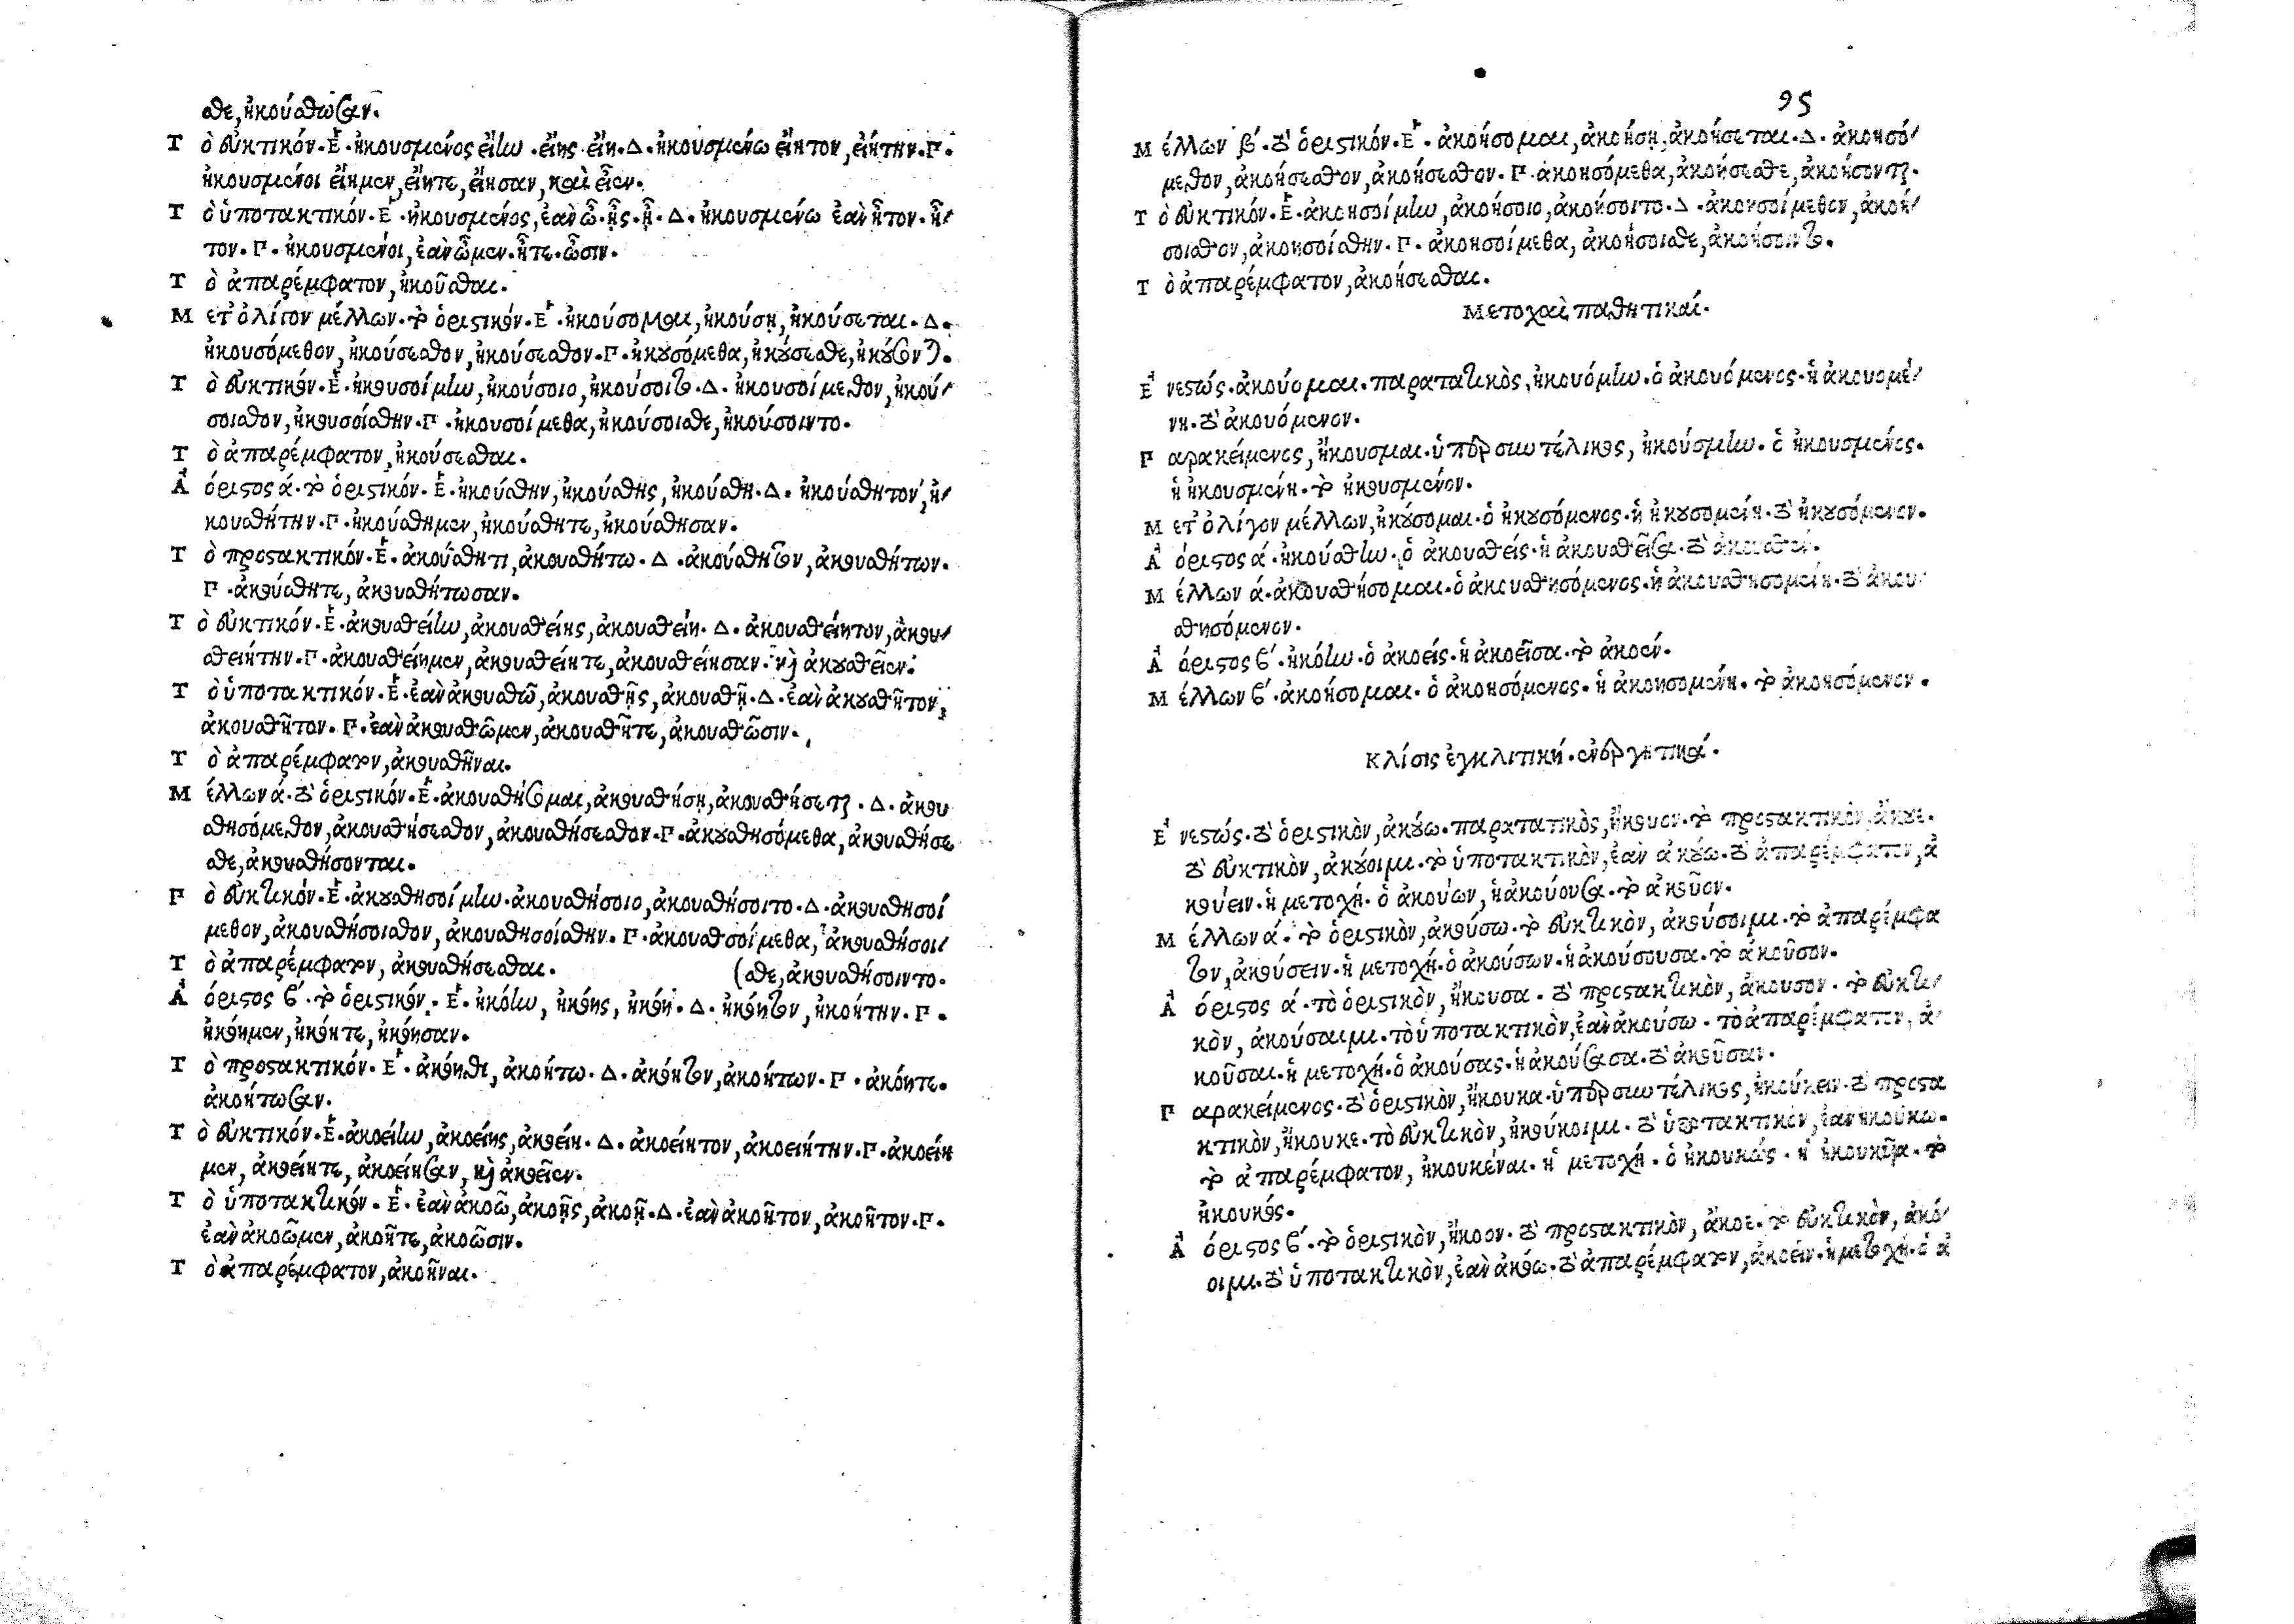 σθε, ἠκούσθωσαν.
Τὸ εὐκτικόν. Ε. ἠκουσμένος εἴην. εἴης. εἴη. Δ. ἠκουσμένω εἴητον, εἰήτην. Γ.
ἠκουσμένοι εἴημεν, εἴητε, εἴησαν, καὶ εἶεν.
Τὸ ὑποτακτικόν. Ε. ἠκουσμένος, ἐὰν ὦ. ᾖς. ᾖ. Δ. ἠκουσμένω ἐὰν ἦτον. ἦ
τον. Γ. ἠκουσμένοι, ἐὰν ὦμεν. ἦτε. ὦσιν.
Τὸ ἀπαρέμφατον, ἠκοῦσθαι.
Μετ' ὀλίγον μέλλων. τὸ ὁριστικόν. Ε. ἠκούσομαι, ἠκούσῃ, ἠκούσεται. Δ.
ἠκουσόμεθον, ἠκούσεσθον, ἠκούσεσθον. Γ. ἠκουσόμεθα, ἠκούσεσθε, ἠκούσονται.
Τὸ εὐκτικόν. Ε. ἠκουσοίμην, ἠκούσοιο, ἠκούσοιτο. Δ. ἠκουσοίμεθον, ἠκού
σοισθον, ἠκουσοίσθην. Γ. ἠκουσοίμεθα, ἠκούσοισθε, ἠκούσοιντο.
Τὸ ἀπαρέμφατον, ἠκούσεσθαι.
Ἀόριστος ά. τὸ ὁριστικόν. Ε. ἠκούσθην, ἠκούσθης, ἠκούσθη. Δ. ἠκούσθητον, ἠ
κουσθήτην. Γ. ἠκούσθημεν, ἠκούσθητε, ἠκούσθησαν.
Τὸ προστακτικόν. Ε. ἀκούσθητι, ἀκουσθήτω. Δ. ἀκούσθητον, ἀκουσθήτων.
Γ. ἀκούσθητε, ἀκουσθήτωσαν.
Τὸ εὐκτικόν. Ε. ἀκουσθείην, ἀκουσθείης, ἀκουσθείη. Δ. ἀκουσθείητον, ἀκου
σθειήτην. Γ. ἀκουσθείημεν, ἀκουσθείητε, ἀκουσθείησαν. καὶ ἀκουσθεῖεν.
Τὸ ὑποτακτικόν. Ε. ἐὰν ἀκουσθῶ, ἀκουσθῇς, ἀκουσθῇ. Δ. ἐὰν ἀκουσθῆτον,
ἀκουσθῆτον. Γ. ἐὰν ἀκουσθῶμεν, ἀκουσθῆτε, ἀκουσθῶσιν.
Τὸ ἀπαρέμφατον, ἀκουσθῆναι.
Μέλλων ά. τὸ ὁριστικόν. Ε. ἀκουσθήσομαι, ἀκουσθήσῃ, ἀκουσθήσεται. Δ. ἀκου
σθησόμεθον, ἀκουσθήσεσθον, ἀκουσθήσεσθον. Γ. ἀκουσθησόμεθα, ἀκουσθήσε
σθε, ἀκουσθήσονται.
Γὸ εὐκτικόν. Ε. ἀκουσθησοίμην. ἀκουσθήσοιο, ἀκουσθήσοιτο. Δ. ἀκουσθησοί
μεθον, ἀκουσθήσοισθον, ἀκουσθησοίσθην. Γ. ἀκουσθσοίμεθα, ἀκουσθήσοι
Τὸ ἀπαρέμφατον, ἀκουσθήσεσθαι. (σθε, ἀκουσθήσοιντο.
Ἀόριστος β΄. τὸ ὁριστικόν. Ε. ἠκόην, ἠκόης, ἠκόη. Δ. ἠκόητον, ἠκοήτην. Γ.
ἠκόημεν, ἠκόητε, ἠκόησαν.
Τὸ προστακτικόν. Ε. ἀκόηθι, ἀκοήτω. Δ. ἀκόητον, ἀκοήτων. Γ. ἀκόητε.
ἀκοήτωσαν.
Τὸ εὐκτικόν. Ε. ἀκοείην, ἀκοείης, ἀκοείη. Δ. ἀκοείητον, ἀκοειήτην. Γ. ἀκοείη
μεν, ἀκοείητε, ἀκοείησαν, καὶ ἀκοεῖεν.
Τὸ ὑποτακτικόν. Ε. ἐὰν ἀκοῶ, ἀκοῇς, ἀκοῇ. Δ. ἐὰν ἀκοῆτον, ἀκοῆτον. Γ.
ἐὰν ἀκοῶμεν, ἀκοῆτε, ἀκοῶσιν.
Τὸ ἀπαρέμφατον, ἀκοῆναι.
95
Μέλλων β΄. τὸ ὁριστικόν. Ε. ἀκοήσομαι, ἀκοήσῃ, ἀκοήσεται. Δ. ἀκοησό
μεθον, ἀκοήσεσθον, ἀκοήσεσθον. Γ. ἀκοησόμεθα, ἀκοήσεσθε, ἀκοήσονται.
Τὸ εὐκτικόν. Ε. ἀκοησοίμην, ἀκοήσοιο, ἀκοήσοιτο. Δ. ἀκοησοίμεθον, ἀκοή
σοισθον, ἀκοησοίσθην. Γ. ἀκοησοίμεθα, ἀκοήσοισθε, ἀκοήσοιντο.
Τὸ ἀπαρέμφατον, ἀκοήσεσθαι.
Μετοχαὶ παθητικαί.
Ἐνεστώς. ἀκούομαι. παρατατικὸς, ἠκουόμην. ὁ ἀκουόμενος. ἡ ἀκουομέ
νη. τὸ ἀκουόμενον.
Παρακείμενος, ἤκουσμαι. ὑπερσυντέλικος, ἠκούσμην. ὁ ἠκουσμένος.
ἡ ἠκουσμένη. τὸ ἠκουσμένον.
Μετ' ὀλίγον μέλλων, ἠκούσομαι. ὁ ἠκουσόμενος. ἡ ἠκουσομένη. τὸ ἠκουσόμενον.
Ἀόριστος ά. ἠκούσθην. ὁ ἀκουσθείς. ἡ ἀκουσθεῖσα. τὸ ἀκουσθέν.
Μέλλων ά. ἀκουσθήσομαι. ὁ ἀκουσθησόμενος. ἡ ἀκουσθησομένη. τὸ ἀκου
σθησόμενον.
Ἀόριστος β΄. ἠκόην. ὁ ἀκοείς. ἡ ἀκοεῖσα. τὸ ἀκοέν.
Μέλλων β΄. ἀκοήσομαι. ὁ ἀκοησόμενος. ἡ ἀκοησομένη. τὸ ἀκοησόμενον.
Κλίσις ἐγκλιτική. ἐνεργητικά.
Ἐνεστώς. τὸ ὁριστικὸν, ἀκούω. παρατατικὸς, ἤκουον. τὸ προστακτικὸν, ἄκουε.
τὸ εὐκτικὸν, ἀκούοιμι. τὸ ὑποτακτικὸν, ἐὰν ἀκούω. τὸ ἀπαρέμφατον, ἀ
κούειν. ἡ μετοχή. ὁ ἀκούων, ἡ ἀκούουσα. τὸ ἀκοῦον.
Μέλλων ά. τὸ ὁριστικὸν, ἀκούσω. τὸ εὐκτικὸν, ἀκούσοιμι. τὸ ἀπαρέμφα
τον, ἀκούσειν. ἡ μετοχή. ὁ ἀκούσων. ἡ ἀκούσουσα. τὸ ἀκοῦσον.
Ἀόριστος ά. τὸ ὁριστικὸν, ἤκουσα. τὸ προστακτικὸν, ἄκουσον. τὸ εὐκτι
κὸν, ἀκούσαιμι. τὸ ὑποτακτικὸν, ἐὰν ἀκούσω. τὸ ἀπαρέμφατον, ἀ
κοῦσαι. ἡ μετοχή. ὁ ἀκούσας. ἡ ἀκούσασα. τὸ ἀκοῦσαν.
Παρακείμενος. τὸ ὁριστικὸν, ἤκουκα. ὑπερσυντέλικος, ἠκούκειν. τὸ προστα
κτικὸν, ἤκουκε. τὸ εὐκτικὸν, ἠκούκοιμι. τὸ ὑποτακτικὸν, ἐὰν ἠκούκω.
τὸ ἀπαρέμφατον, ἠκουκέναι. ἡ μετοχή. ὁ ἠκουκώς. ἡ ἠκουκῖα. τὸ
ἠκουκός.
Ἀόριστος β΄. τὸ ὁριστικὸν, ἤκοον. τὸ προστακτικὸν, ἄκοε. τὸ εὐκτικὸν, ἀκό
οιμι. τὸ ὑποτακτικὸν, ἐὰν ἀκόω. τὸ ἀπαρέμφατον, ἀκοεῖν. ἡ μετοχή. ὁ ἀ